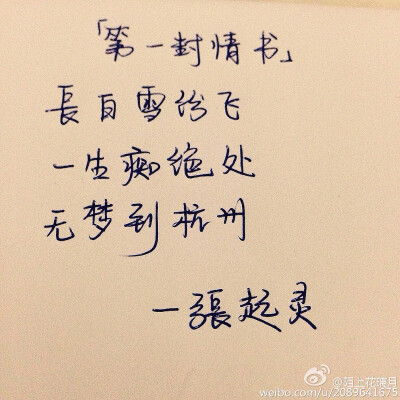 「第一封情书」
長白雪纷飞
一生痴绝处
无梦到杭州
一張起灵
@陌上花璃月
weibo.com/u/2089641675